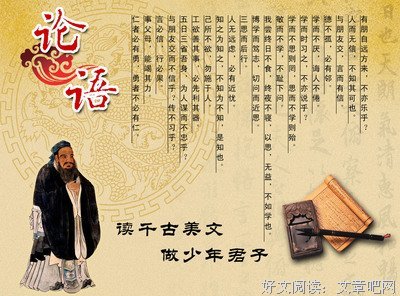 论语
有朋自远方来，不亦乐乎？
人而无信，不知其可也。
与朋友交，言而有信
德不孤，必有邻
学而不厌，诲人不倦。
学而时习之，不亦说乎？
学而不思则罔，思而不学则殆。
敏而好学，不耻下问。
我尝终日不食，终夜不寝，以思，无益，不如学也。
博学而笃志，切问而近思。
三思而后行
人无远虑，必有近忧
知之为知之，不知为不知，是知也。
己所不欲，勿施于人
工欲善其事，必先利其器
五日三省吾身：为人谋而不忠乎？
与朋友交而不信乎？传不习乎？
事父母，能竭其力
言必信，行必果
仁者必有勇，勇者不必有仁。
读千古美文
做少年君子
好文阅读：文章吧网